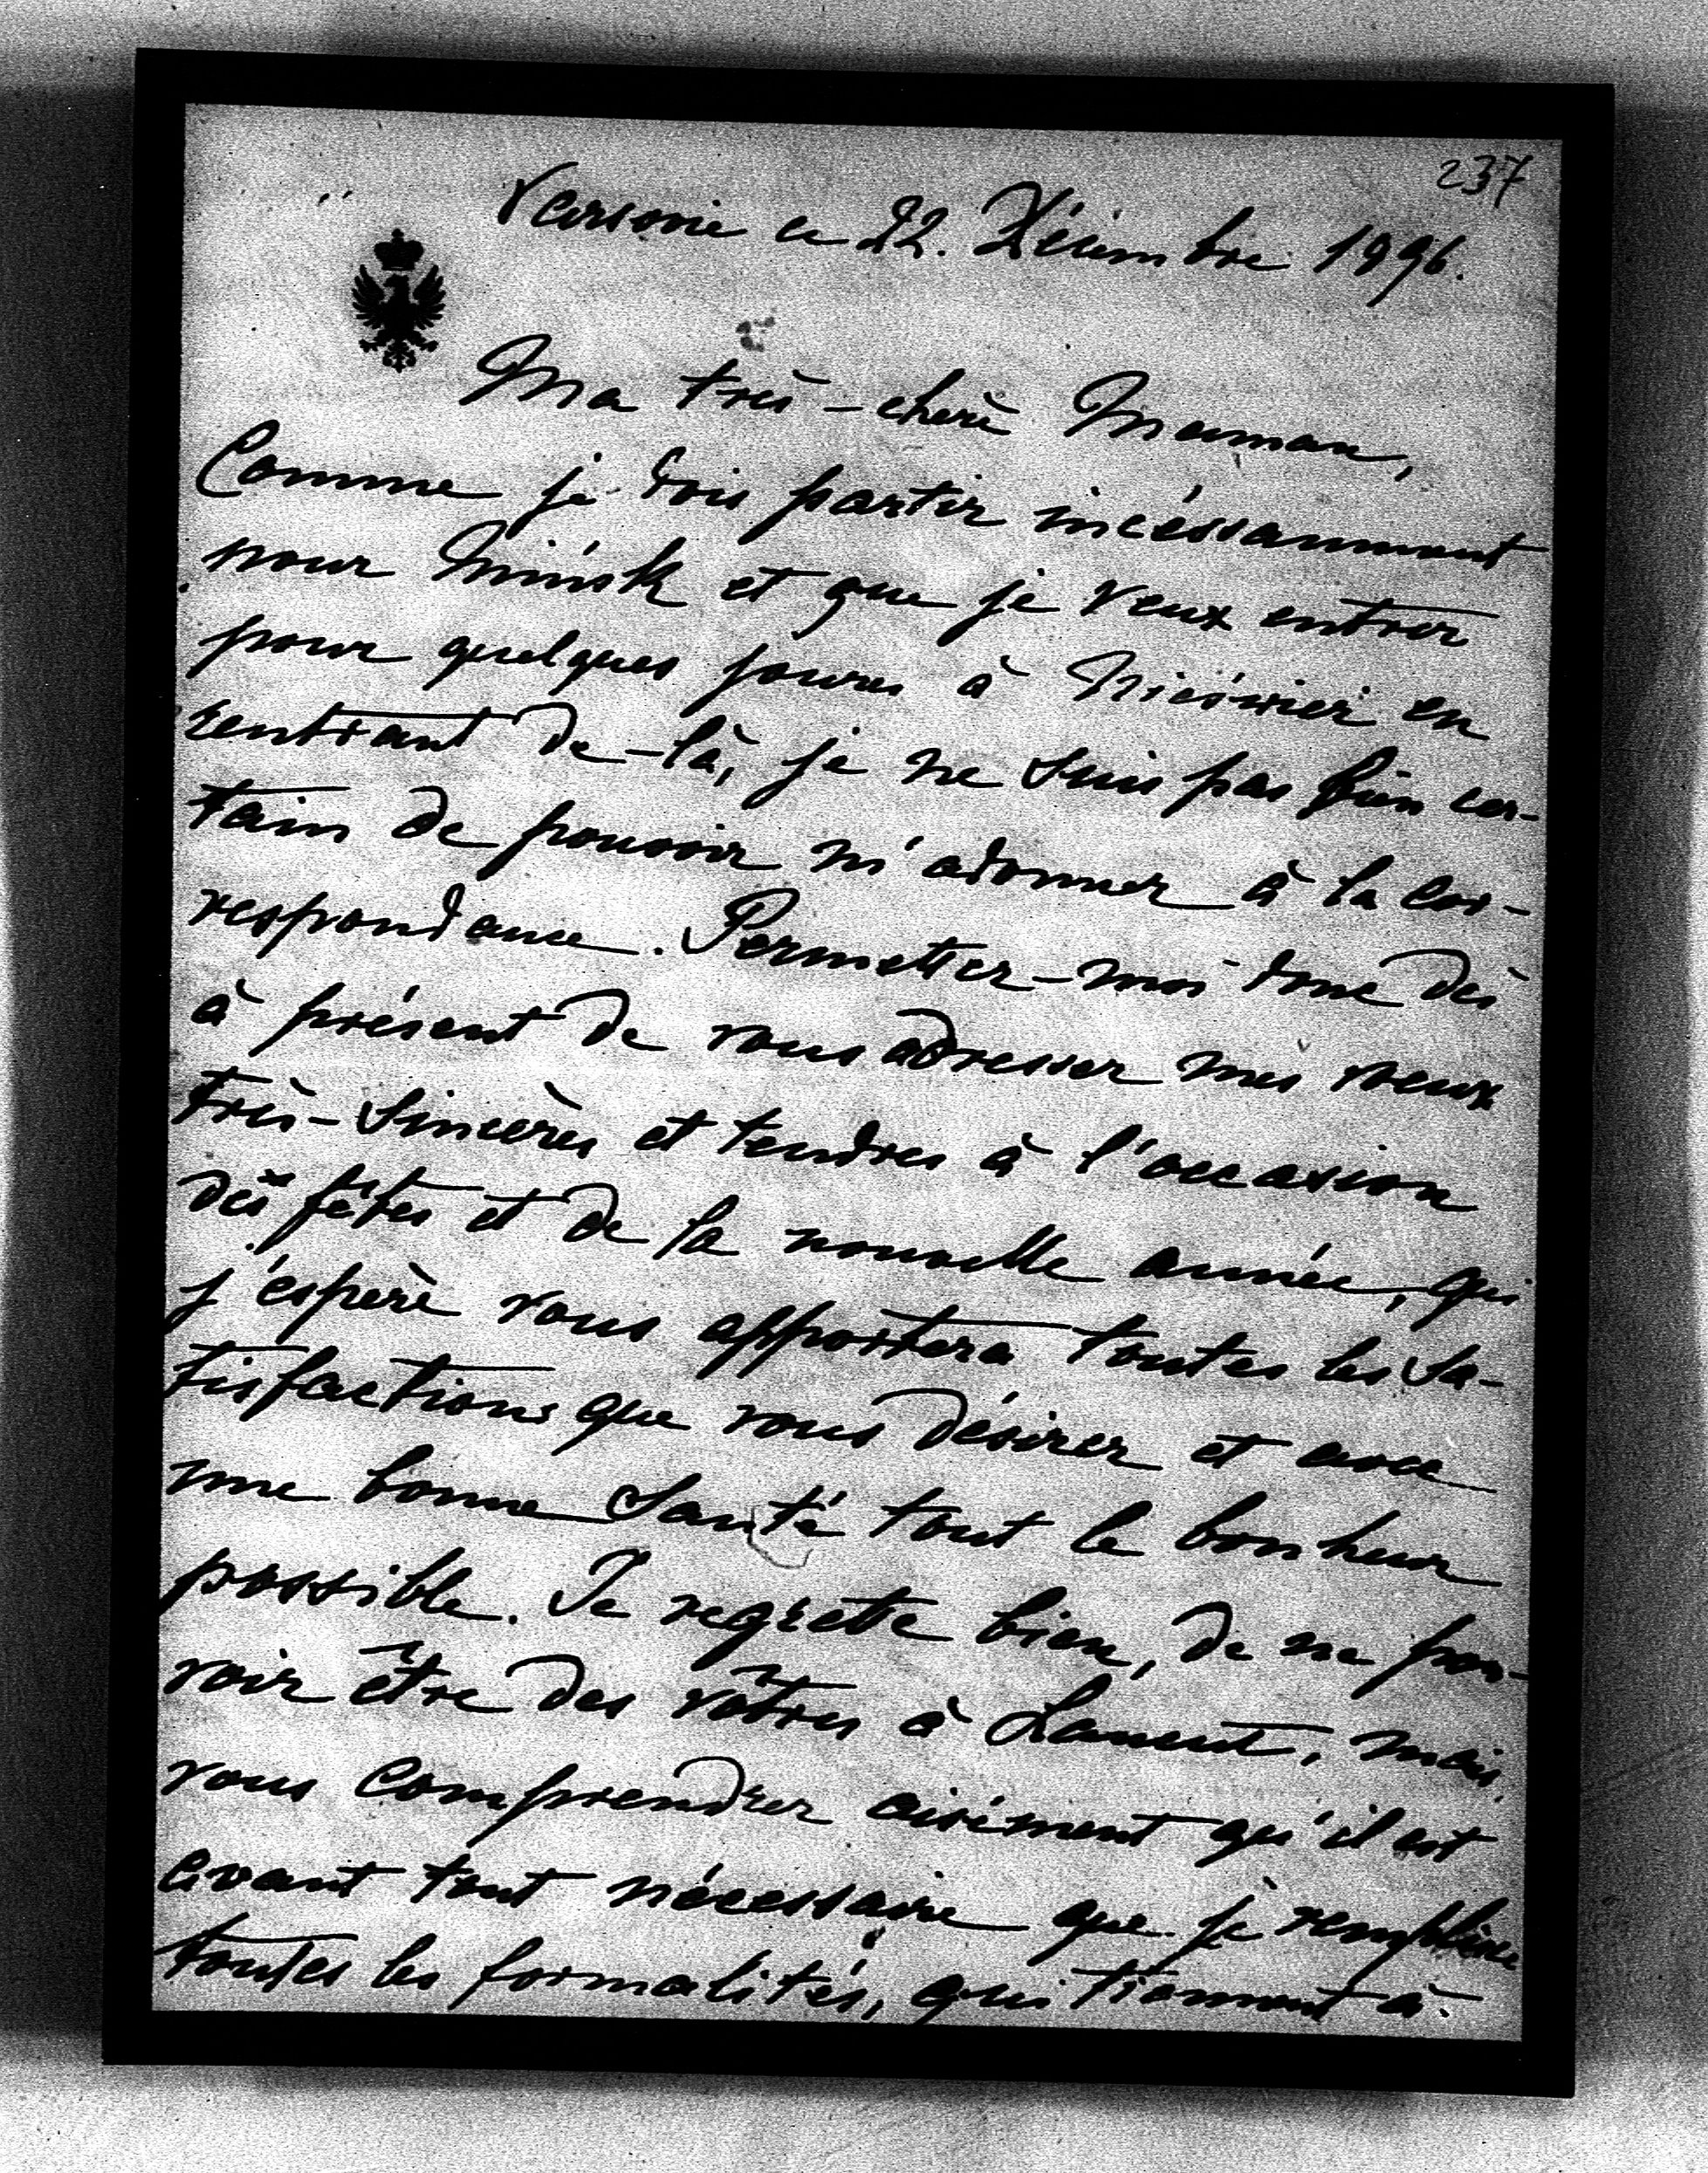 237
Varsovie ce 22. Décembre 1896.
Ma très-chère Maman,
Comme je dois partir incéssamment
pour Mińsk et que je veux entrer
pour quelques jours à Nieśwież en
rentrant de-là, je ne suis pas bien cer-
tain de pouvoir m'adonner à la cor-
respondance. Permettez-moi donc dès
à présent de vous adresser mes voeux
très-sincères et tendres à l'occasion
dès fêtes et de la nouvelle année, qui
j'espère vous apportera toutes les sa-
tisfactions que vous désirez et avec
une bonne santé tout le bonheur
possible. Je regrette bien, de ne pou-
voir être des vôtres à Lancut, mais
vous comprendrez aisément qu'il est
avant tout nécessaire que je remplisse
toutes les formalités, qui tiennent à